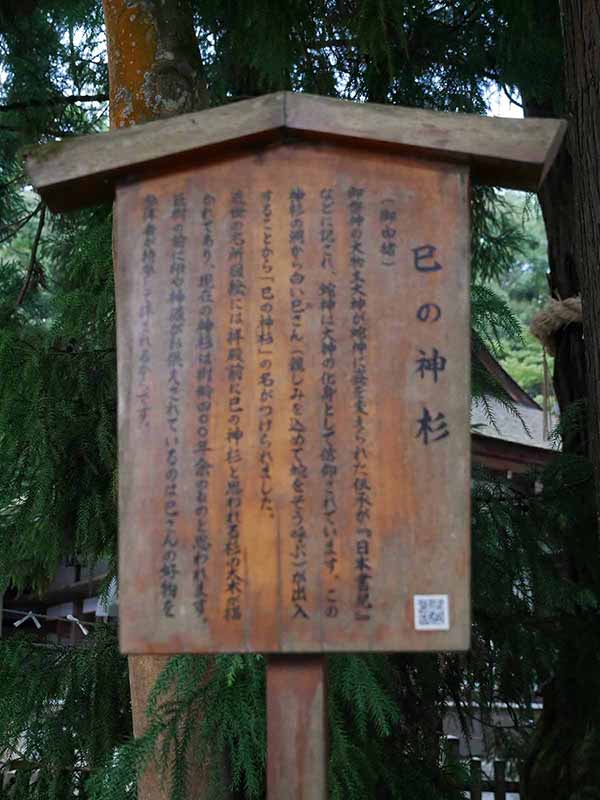 巳の神杉
（御由緒）
御祭神の大物主大神が蛇神に姿を変えられた伝承が『日本書紀』
などに記され、蛇神は大神の化身として信仰されています。この
神杉の洞から白い巳さん（親しみを込めて蛇をそう呼ぶ）が出入
することから「巳の神杉」の名がつけられました。
近世の名所図絵には拝殿前に巳の神杉と思われる杉の大木が描
かれてあり、現在の神杉は樹齢四〇〇年余のものと思われます。
近樹の前に卵や神酒がお供えされているのは巳さんの好物を
参拝者が持参して拝まれるからです。